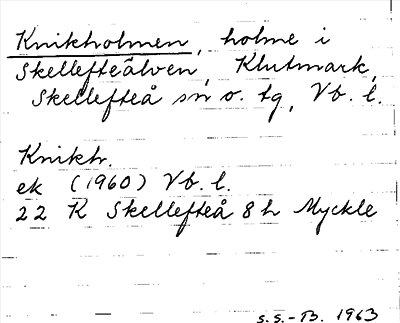 Knikholmen, holme i
Skellefteälven, Klutmark,
Skellefteå sn o. tg, Vb. l.
Knikh.
ek (1960) Vb. l.
22 K Skellefteå 8 h Myckle
S.S.-B. 1963